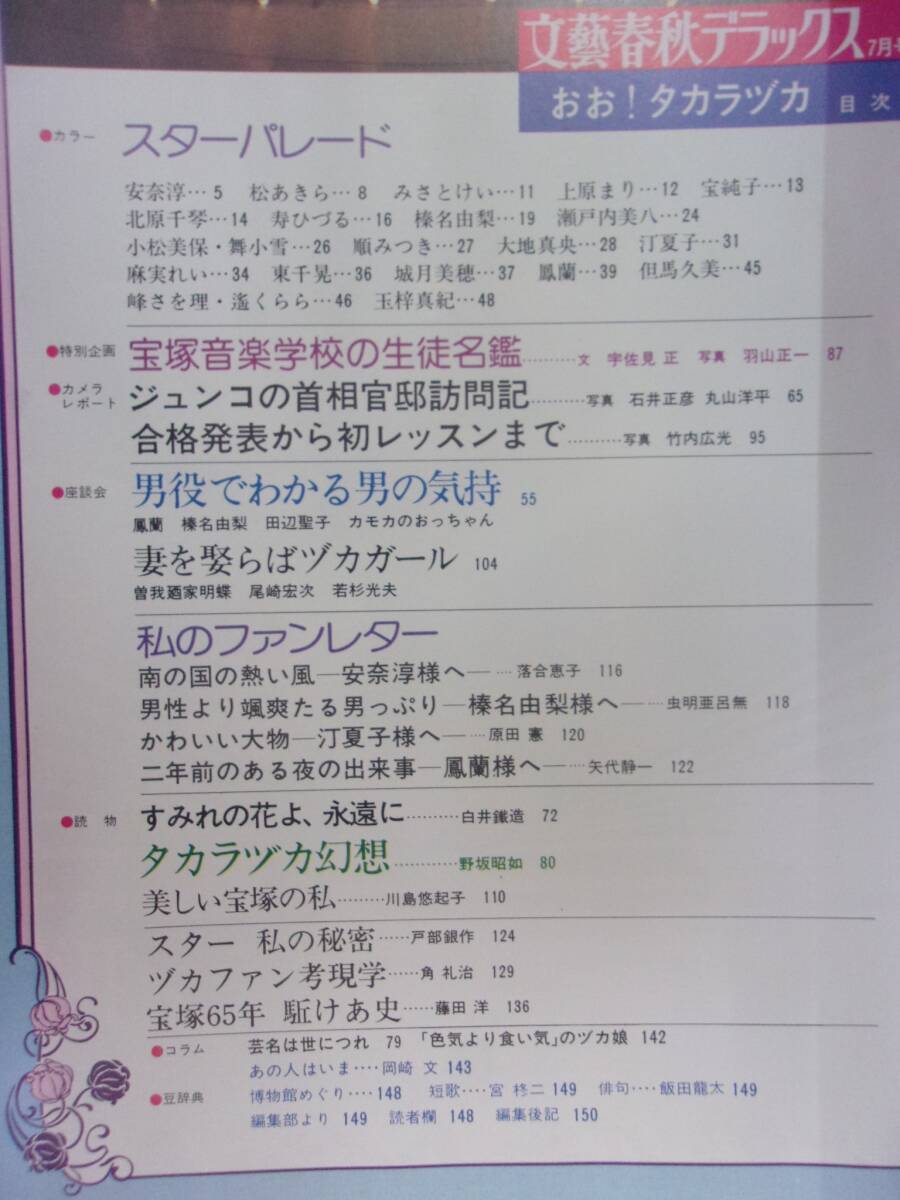 文藝春秋デラックス 7月号
おお！タカラヅカ 目次
●カラー スターパレード
安奈淳…5 松あきら…8 みさとけい…11 上原まり…12 宝純子…13
北原千琴…14 寿ひづる…16 榛名由梨…19 瀬戸内美八…24
小松美保・舞小雪…26 順みつき…27 大地真央…28 汀夏子…31
麻実れい…34 東千晃…36 城月美穂…37 鳳蘭…39 但馬久美…45
峰さを理・遙くらら…46 玉梓真紀…48
●特別企画 宝塚音楽学校の生徒名鑑………文 宇佐見 正 写真 羽山正一 87
●カメラレポート ジュンコの首相官邸訪問記………写真 石井正彦 丸山洋平 65
合格発表から初レッスンまで………写真 竹内広光 95
●座談会 男役でわかる男の気持 55
鳳蘭 榛名由梨 田辺聖子 カモカのおっちゃん
妻を娶らばヅカガール 104
曽我廼家明蝶 尾崎宏次 若杉光夫
私のファンレター
南の国の熱い風—安奈淳様へ—…落合恵子 116
男性より颯爽たる男っぷり—榛名由梨様へ—…虫明亜呂無 118
かわいい大物—汀夏子様へ—…原田 憲 120
二年前のある夜の出来事—鳳蘭様へ—…矢代静一 122
●読物 すみれの花よ、永遠に………白井鐵造 72
タカラヅカ幻想………野坂昭如 80
美しい宝塚の私………川島悠起子 110
スター 私の秘密……戸部銀作 124
ヅカファン考現学……角 礼治 129
宝塚65年 駈けあ史……藤田 洋 136
●コラム 芸名は世につれ 79 「色気より食い気」のヅカ娘 142
あの人はいま‥‥岡崎 文 143
●豆辞典 博物館めぐり‥‥148 短歌‥‥宮 柊二 149 俳句‥‥飯田龍太 149
編集部より 149 読者欄 148 編集後記 150